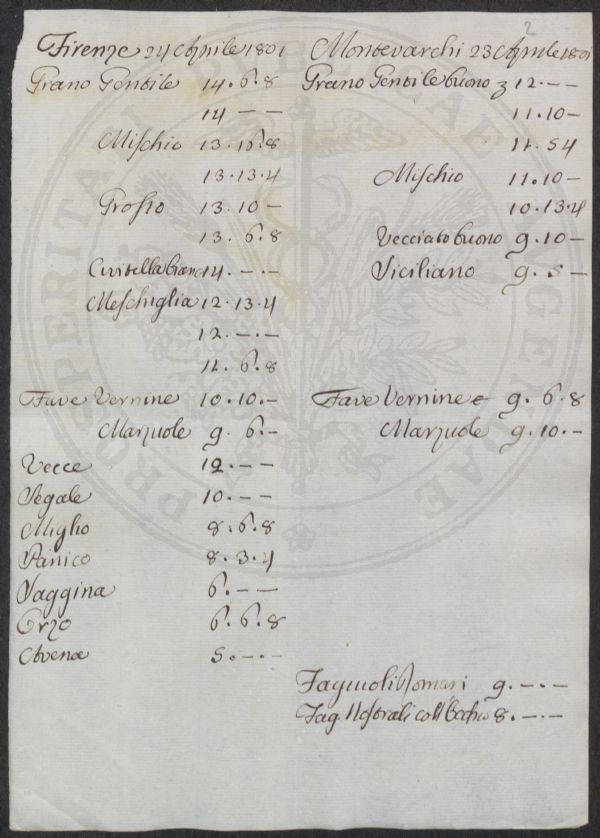 2
Firenze 24 Aprile 1801
Grano Gentile 14.6.8
14 — —
Mischio 13.16.8
13.13.4
Grosso 13.10 —
13.6.8
Civitella bianc 14. —.—
Meschiglia 12.13.4
12. —.—
11.6.8
Fave Vernine 10.10.—
Marzuole 9.6.—
Vecce 12.— —
Segale 10.— —
Miglio 8.6.8
Panico 8.3.4
Saggina 6.— —
Orzo 6.6.8
Avena 5.—.—
Montevarchi 23 Aprile 1801
Grano Gentile buono 12.— —
11.10 —
11.5 4
Mischio 11.10 —
10.13.4
Vecciato buono 9.10 —
Siciliano 9.5 —
Fave Vernine 9.6.8
Marzuole 9.10.—
Fagiuoli Romani 9.—.—
Fag. Nostrali coll'Occhio 8.—.—
PROSPERITATI PUBLICAE AUGENDAE